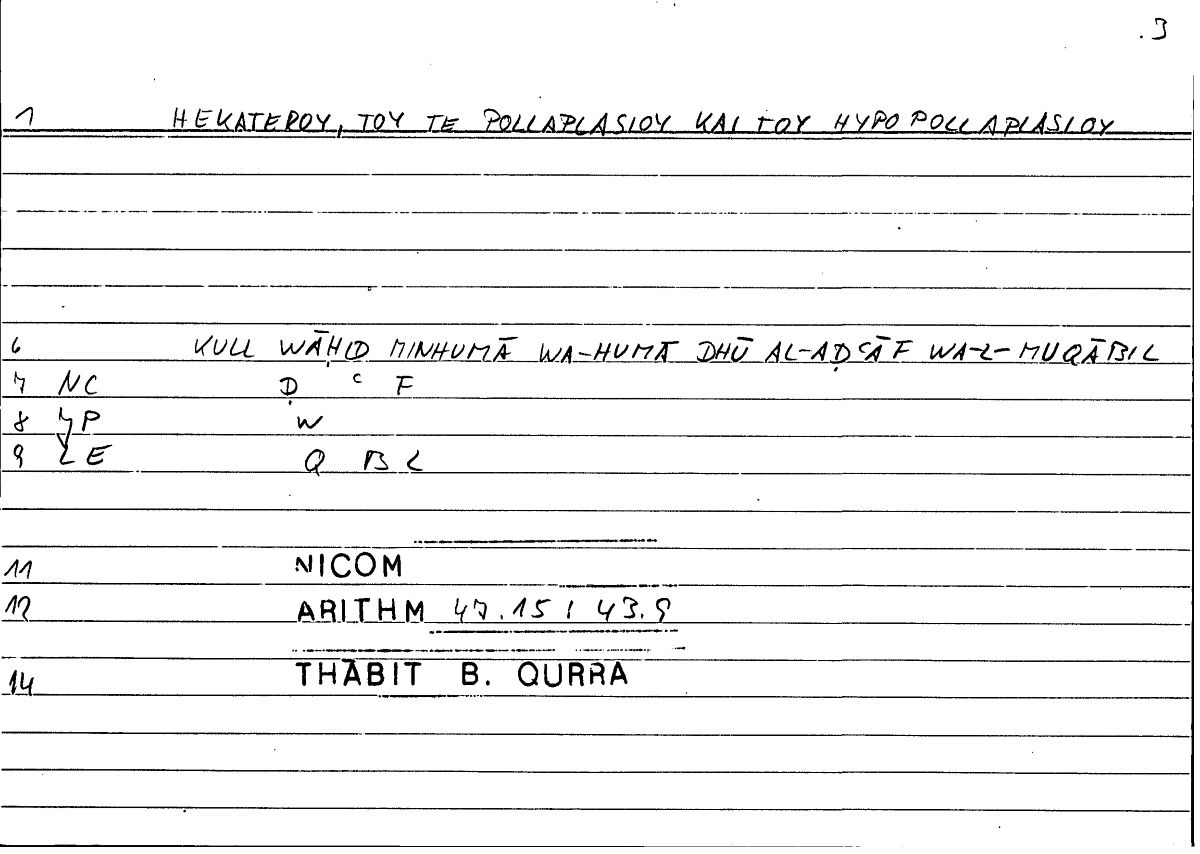 .3
1 HEKATEROY, TOY TE POLLAPLASIOY KAI TOY HYPOPOLLAPLASIOY
6 KULL WĀḤID MINHUMĀ WA-HUMĀ DHŪ AL-AḌʿĀF WA-L-MUQĀBIL
7 NC Ḍ ʿ F
8 P W
9 LE Q B L
11 NICOM
12 ARITHM 47.15 / 43.9
14 THĀBIT B. QURRA